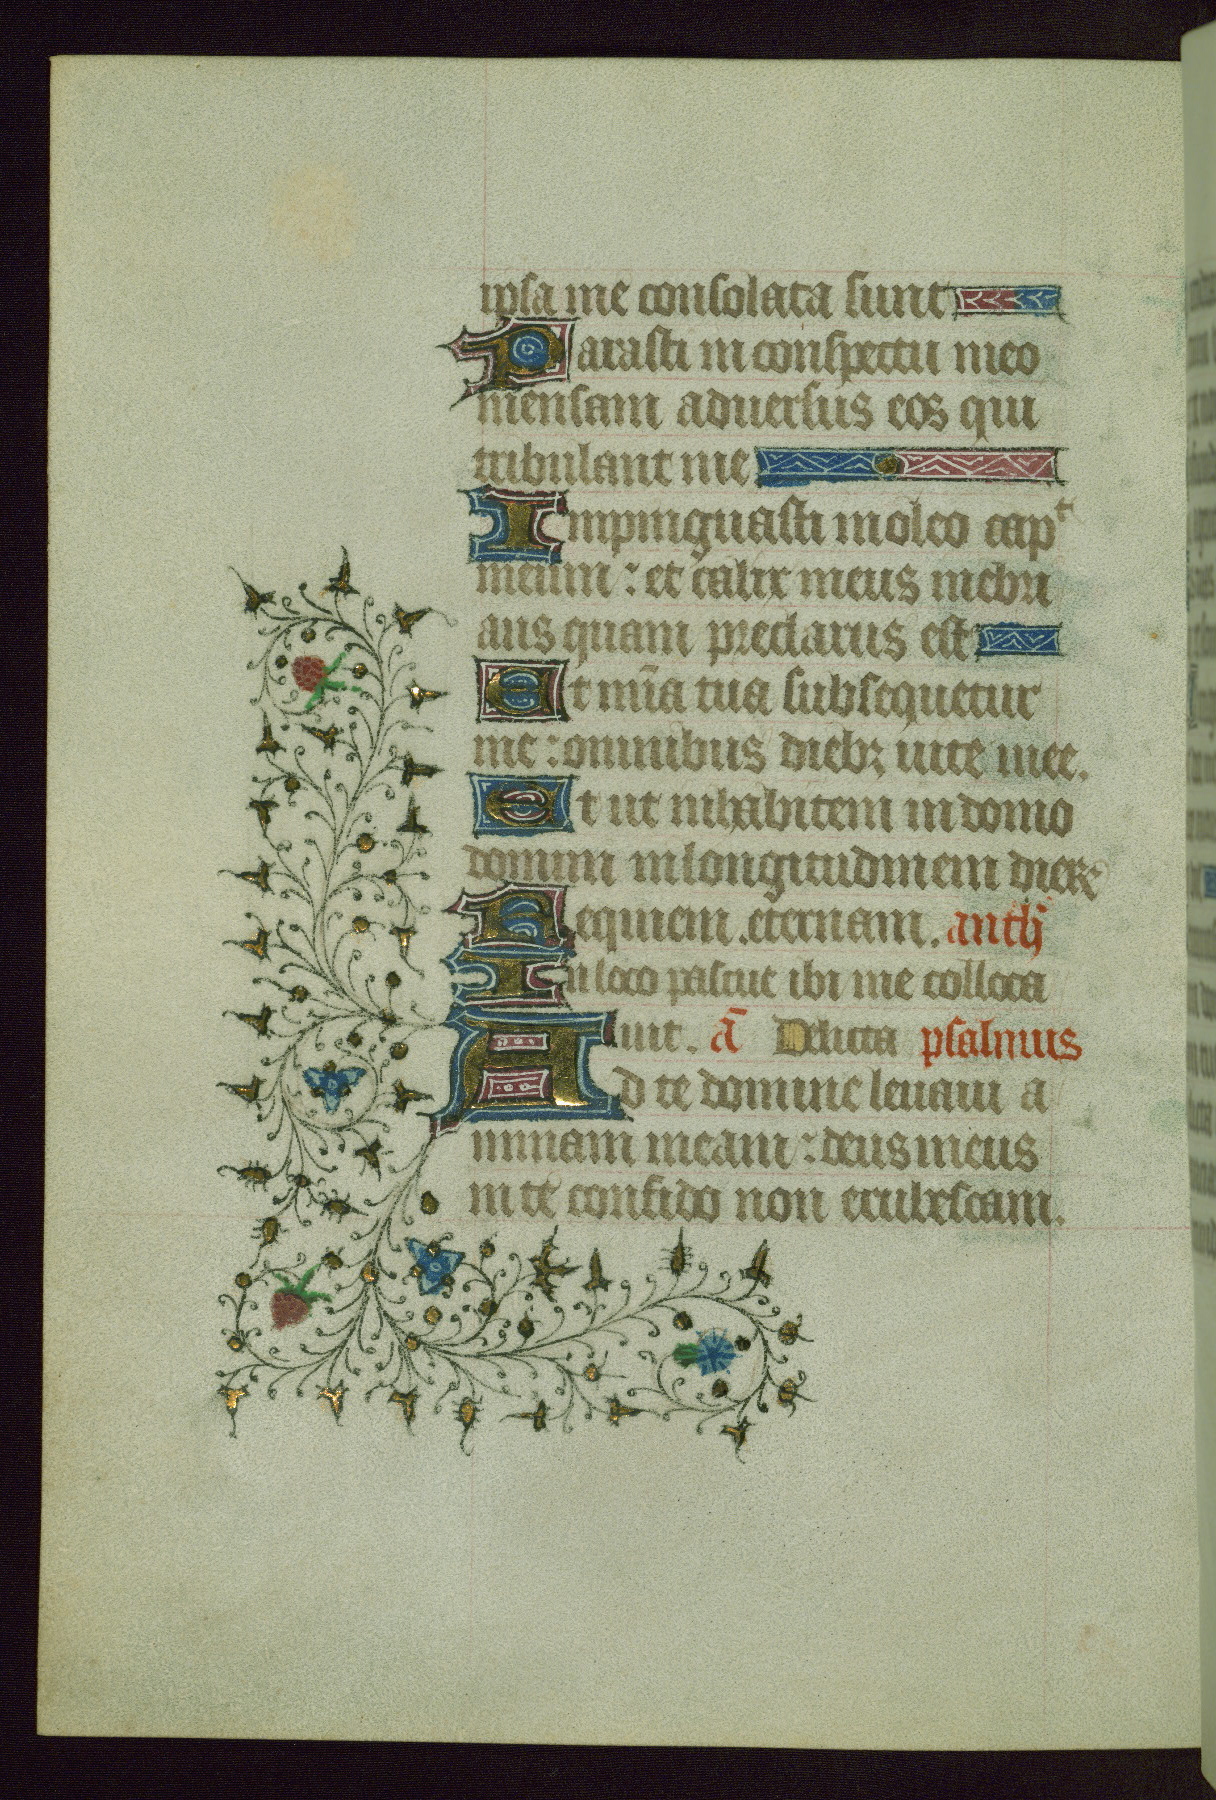 ipsa me consolata sunt
Parasti in conspectu meo
mensam aduersus eos qui
tribulant me
Impinguasti in oleo capᵗ
meum : et calix meus inebri
ans quam preclarus est
Et mīa tua subsequetur
me : omnibus diebꝫ uite mee.
Et ut inhabitem in domo
domini in longitudinem dierꝝ
Requiem eternam. anth
In loco pascue ibi me colloca
uit. ā Delicta psalmus
Ad te domine leuaui a
nimam meam : deus meus
in te confido non erubescam.